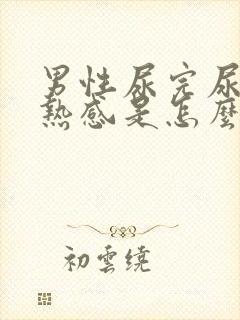 男性尿完尿
熱感是怎麼
初雲繞